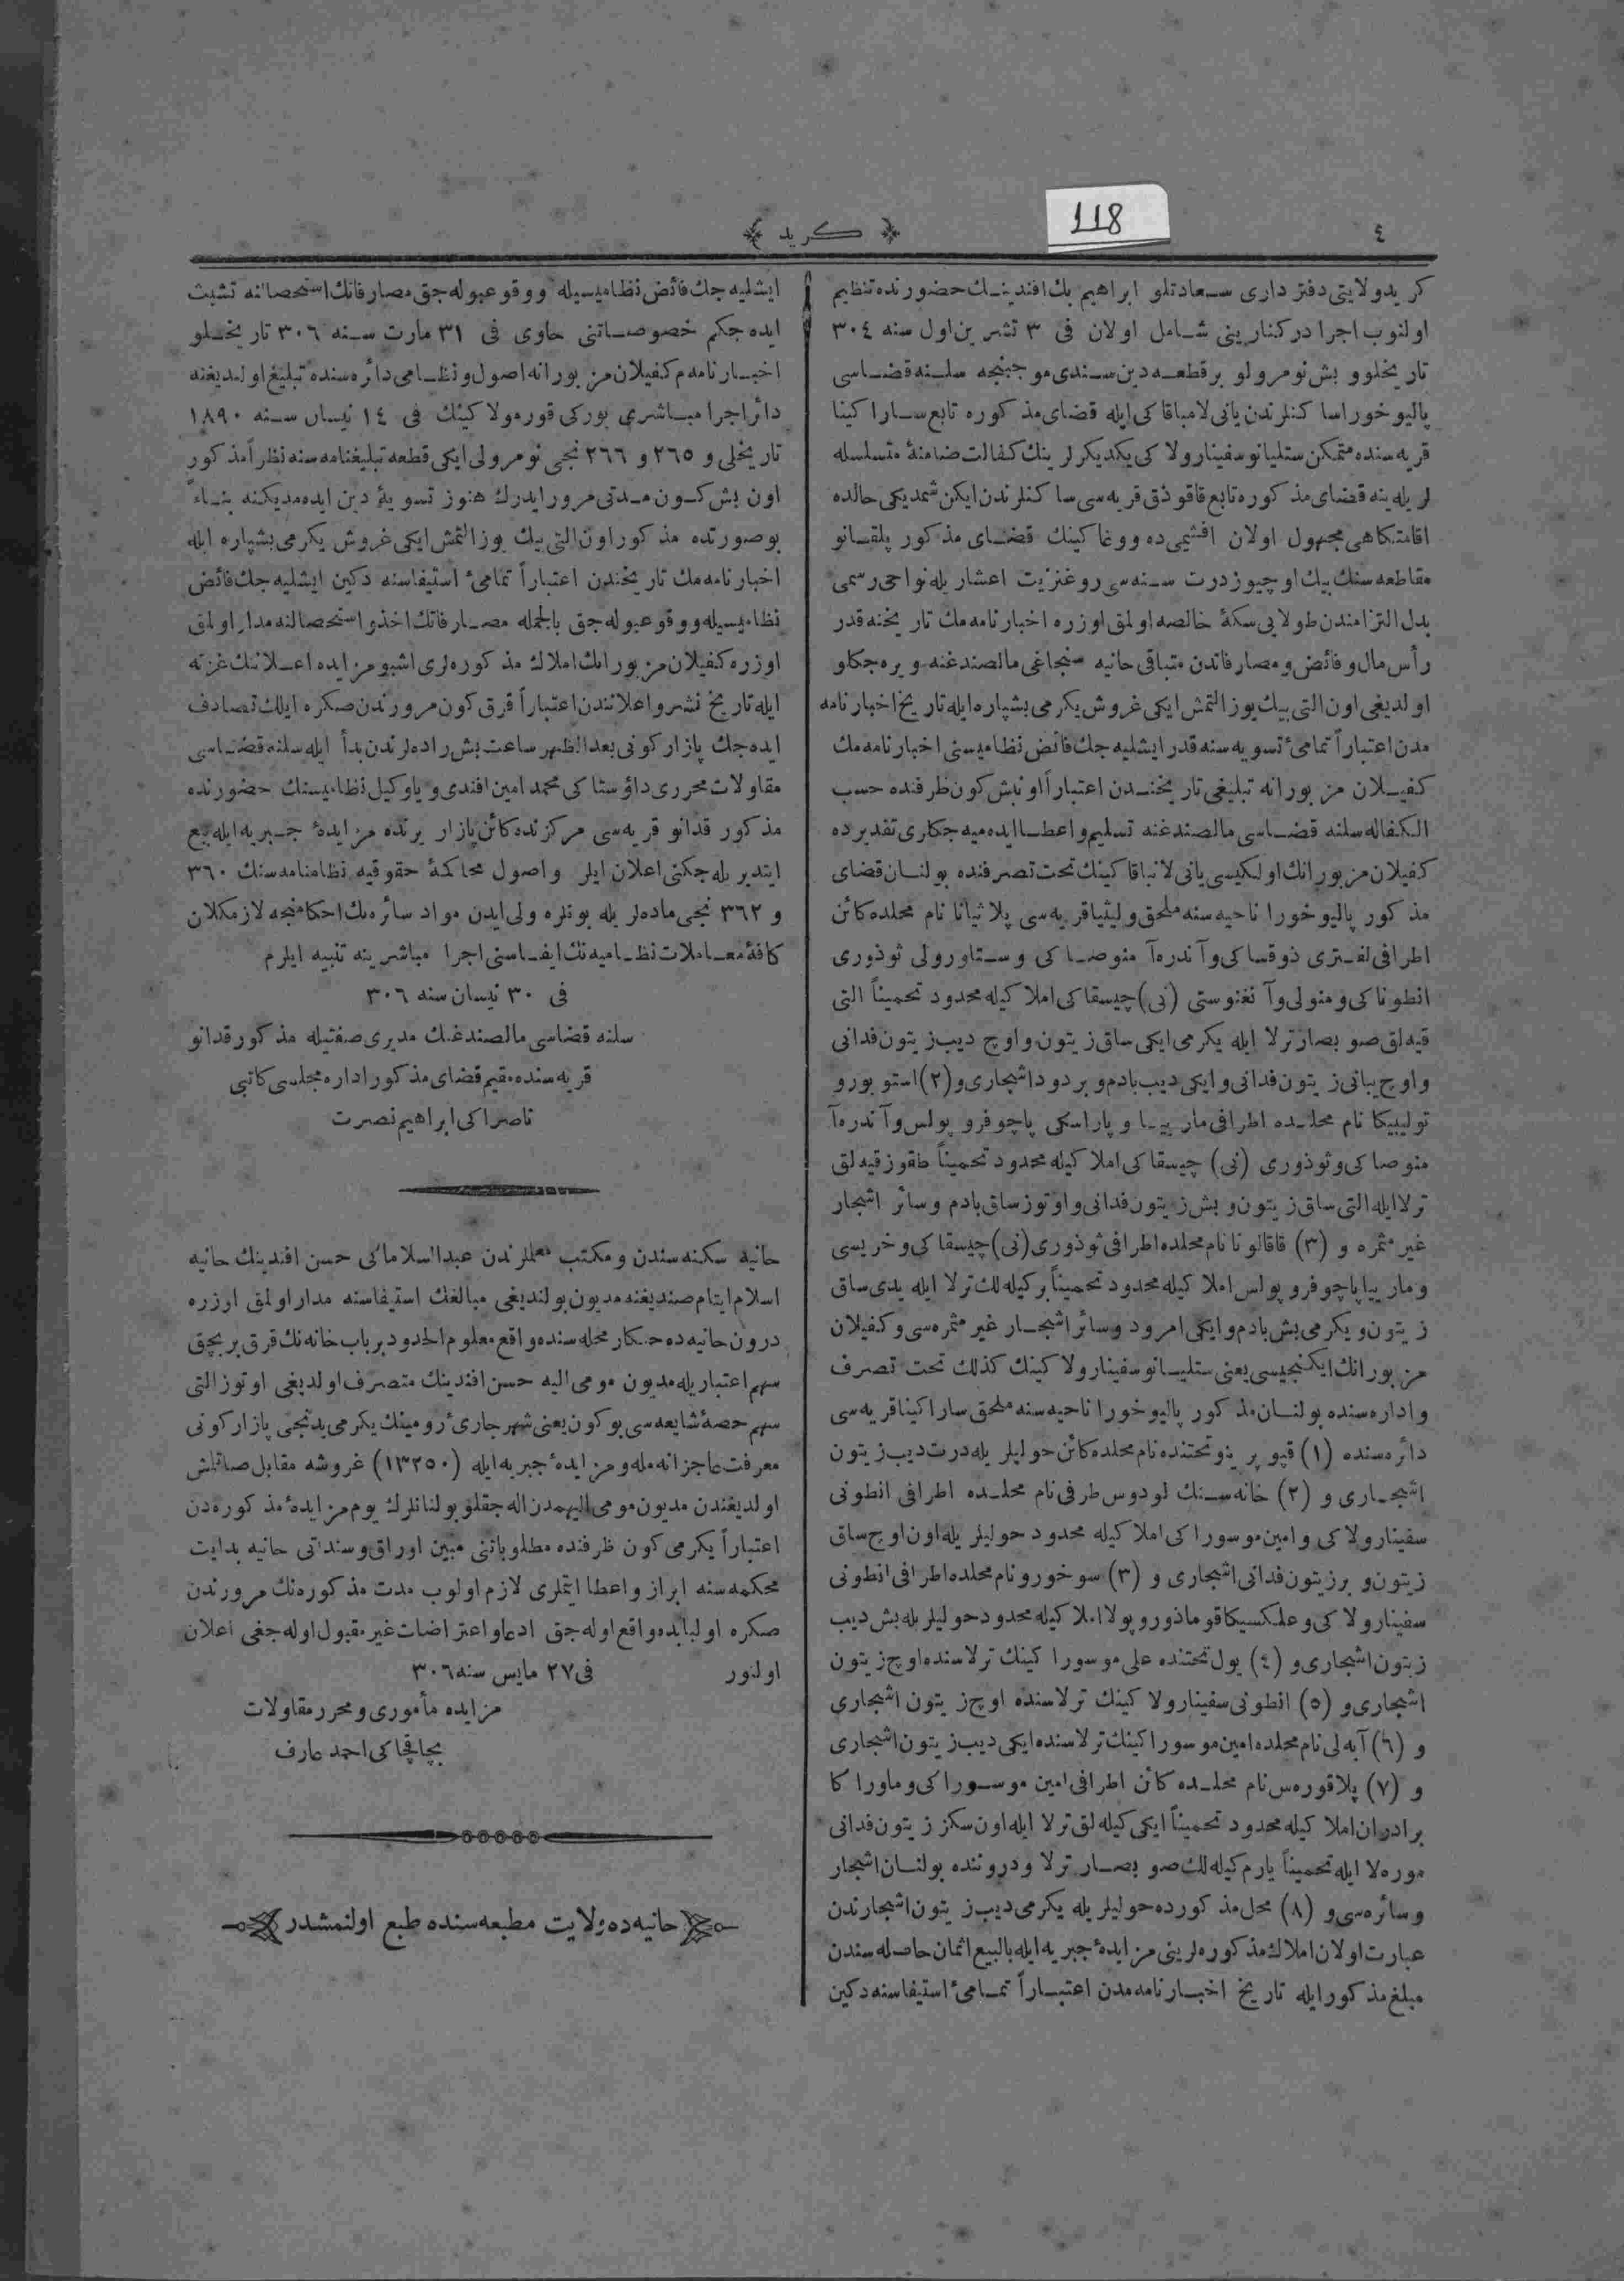 ٤
118
﴿ كريد ﴾
كريد ولايتى دفتردارى سعادتلو ابراهيم بك افندينك حضورنده تنظيم
اولنوب اجرا دركنارينى شامل اولان فى ٣ تشرين اول سنه ٣٠٤
تاريخلو و بش نومرولو بر قطعه دين سندى موجبنجه سلنه قضاسى
پاليوخورا ساكنلرندن يانى لامباقاكى ايله قضاى مذكوره تابع ساراكينا
قريه سنده متمكن ستليانو سفينارولاكى يكديكرلرينك كفالت ضامنۀ متسلسله
لريله ينه قضاى مذكوره تابع قاقوذق قريه سى ساكنلرندن ايكن شمديكى حالده
اقامتكاهى مجهول اولان افتيمى ده ووغاكينك قضاى مذكور پلقانو
مقاطعه سنك بيك اوچيوز درت سنه سى روغنزيت اعشاريله نواحى رسمى
بدل التزامندن طولايى سكۀ خالصه اولمق اوزره اخبارنامه مك تاريخنه قدر
رأس مال و فائض و مصارفاتدن متباقى حانيه سنجاغى مالصندغنه ويره جكلو
اولديغى اون التى بيك يوز التمش ايكى غروش يكرمى بشپاره ايله تاريخ اخبارنامه
مدن اعتباراً تمامىٔ تسويه سنه قدر ايشليه جك فائض نظاميسنى اخبارنامه مك
كفيلان مزبورانه تبليغى تاريخندن اعتباراً اونبش كون ظرفنده حسب
الكفاله سلنه قضاسى مالصندغنه تسليم و اعطا ايده ميه جكارى تقديرده
كفيلان مزبورانك اولكيسى يانى لانباقاكينك تحت تصرفنده بولنان قضاى
مذكور پاليوخورا ناحيه سنه ملحق وليثيا قريه سى پلاثيانا نام محلده كائن
اطرافى لفترى ذوقساكى و آندره آ منوصاكى و ستاورولى ثوذورى
انطوناكى و منولى و آ نغنوستى (نى) چيسقاكى املاكيله محدود تخميناً التى
قيه لق صو بصار ترلا ايله يكرمى ايكى ساق زيتون و اوچ ديب زيتون فدانى
و اوچ يبانى زيتون فدانى و ايكى ديب بادم و بر دود اشجارى و (٢) استو بورو
توليپيكا نام محلده اطرافى ماريا و پاراسكى پاچوفروپولس و آندره آ
منوصاكى و ثوذورى (نى) چيسقاكى املاكيله محدود تخميناً طقوز قيه لق
ترلا ايله التى ساق زيتون و بش زيتون فدانى و اوتوز ساق بادم و سائر اشجار
غير مثمره و (٣) قاقالونا نام محلده اطرافى ثوذورى (نى) چيسقاكى و خريسى
و ماريا پاچوفروپولس املاكيله محدود تخميناً بر كيله لك ترلا ايله يدى ساق
زيتون و يكرمى بش بادم و ايكى امرود و سائر اشجار غير مثمره سى و كفيلان
مزبورانك ايكنجيسى يعنى ستليانو سفينارولاكينك كذلك تحت تصرف
و اداره سنده بولنان مذكور پاليوخورا ناحيه سنه ملحق ساراكينا قريه سى
دائره سنده (١) قپو پرينو تحتنده نام محلده كائن حوليلريله درت ديب زيتون
اشجارى و (٢) خانه سنك لودوس طرفى نام محلده اطرافى انطونى
سفينارولاكى و امين موسوراكى املاكيله محدود حوليلريله اون اوچ ساق
زيتون و بر زيتون فدانى اشجارى و (٣) سوخورو نام محلده اطرافى انطونى
سفينارولاكى و علكسيكاقو ماذوروپولا املاكيله محدود حوليلريله بش ديب
زيتون اشجارى و (٤) يول تحتنده على موسوراكينك ترلاسنده اوچ زيتون
اشجارى و (٥) انطونى سفينارولاكينك ترلاسنده اوچ زيتون اشجارى
و (٦) آبه لى نام محلده امين موسوراكينك ترلاسنده ايكى ديب زيتون اشجارى
و (٧) پلاقوره س نام محلده كائن اطرافى امين موسوراكى و ماوراكا
برادران املاكيله محدود تخميناً ايكى كيله لق ترلا ايله اون سكز زيتون فدانى
موره لا ايله تخميناً يارم كيله لك صو بصار ترلا و دروننده بولنان اشجار
و سائره سى و (٨) محل مذكورده حوليلريله يكرمى ديب زيتون اشجارندن
عبارت اولان املاك مذكوره لرينى مزايدۀ جبريه ايله بالبيع اثمان حاصله سندن
مبلغ مذكور ايله تاريخ اخبارنامه مدن اعتباراً تمامىٔ استيفاسنه دكين
ايشليه جك فائض نظاميسيله و وقوعبوله جق مصارفاتك استحصالنه تشبث
ايده جكم خصوصاتنى حاوى فى ٣١ مارت سنه ٣٠٦ تاريخلو
اخبارنامه م كفيلان مزبورانه اصول و نظامى دائره سنده تبليغ اولنديغنه
دائر اجرا مباشرى يوركى قورمولاكينك فى ١٤ نيسان سنه ١٨٩٠
تاريخلى و ٢٦٥ و ٢٦٦ نجى نومرولى ايكى قطعه تبليغنامه سنه نظراً مذكور
اون بش كون مدتى مرور ايدرك هنوز تسويۀ دين ايده مديكنه بناءً
بو صورتده مذكور اون التى بيك يوز التمش ايكى غروش يكرمى بشپاره ايله
اخبارنامه مك تاريخندن اعتباراً تمامىٔ استيفاسنه دكين ايشليه جك فائض
نظاميسيله و وقوعبوله جق بالجمله مصارفاتك اخذ و استحصالنه مدار اولمق
اوزره كفيلان مزبورانك املاك مذكوره لرى اشبو مزايده اعلاننك غزته
ايله تاريخ نشر و اعلانندن اعتباراً قرق كون مرورندن صكره ايلك تصادف
ايده جك پازار كونى بعد الظهر ساعت بش راده لرندن بدأ ايله سلنه قضاسى
مقاولات محررى داؤستاكى محمد امين افندى و ياوكيل نظاميسنك حضورنده
مذكور قدانو قريه سى مركزنده كائن پازار يرنده مزايدۀ جبريه ايله بيع
ايتديريله جكنى اعلان ايلر و اصول محاكمۀ حقوقيه نظامنامه سنك ٣٦٠
و ٣٦٢ نجى ماده لريله بونلره ولى ايدن مواد سائره نك احكامنجه لازمكلان
كافۀ معاملات نظاميه نك ايفاسنى اجرا مباشرينه تنبيه ايلرم
فى ٣٠ نيسان سنه ٣٠٦
سلنه قضاسى مالصندغنك مديرى صفتيله مذكور قدانو
قريه سنده مقيم قضاى مذكور اداره مجلسى كاتبى
ناصراكى ابراهيم نصرت
حانيه سكنه سندن و مكتب معلملرندن عبدالسلاماكى حسن افندينك حانيه
اسلام ايتام صنديغنه مديون بولنديغى مبالغك استيفاسنه مدار اولمق اوزره
درون حانيه ده حنكار محله سنده واقع معلوم الحدود بر باب خانه نك قرق بر بچق
سهم اعتباريله مديون مومى اليه حسن افندينك متصرف اولديغى اوتوز التى
سهم حصۀ شايعه سى بو كون يعنى شهر جارىٔ رومينك يكرمى يدنجى پازار كونى
معرفت عاجزانه مله و مزايدۀ جبريه ايله (١٣٢٥٠) غروشه مقابل صاتلش
اولديغندن مديون مومى اليهمدن اله جقلو بولنانلرك يوم مزايدۀ مذكوره دن
اعتباراً يكرمى كون ظرفنده مطلوباتنى مبين اوراق و سنداتى حانيه بدايت
محكمه سنه ابراز و اعطا ايتملرى لازم اولوب مدت مذكوره نك مرورندن
صكره اولبابده واقع اوله جق ادعا و اعتراضات غير مقبول اوله جغى اعلان
اولنور فى ٢٧ مايس سنه ٣٠٦
مزايده مأمورى و محرر مقاولات
بچاقچاكى احمد عارف
حانيه ده ولايت مطبعه سنده طبع اولنمشدر